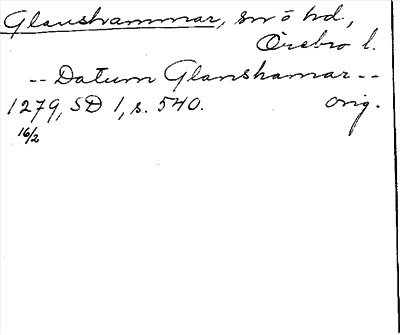 Glanshammar, sn o hd,
Örebro l.
-- Datum Glanshamar --
1279, SD 1, s. 540. orig.
16/2